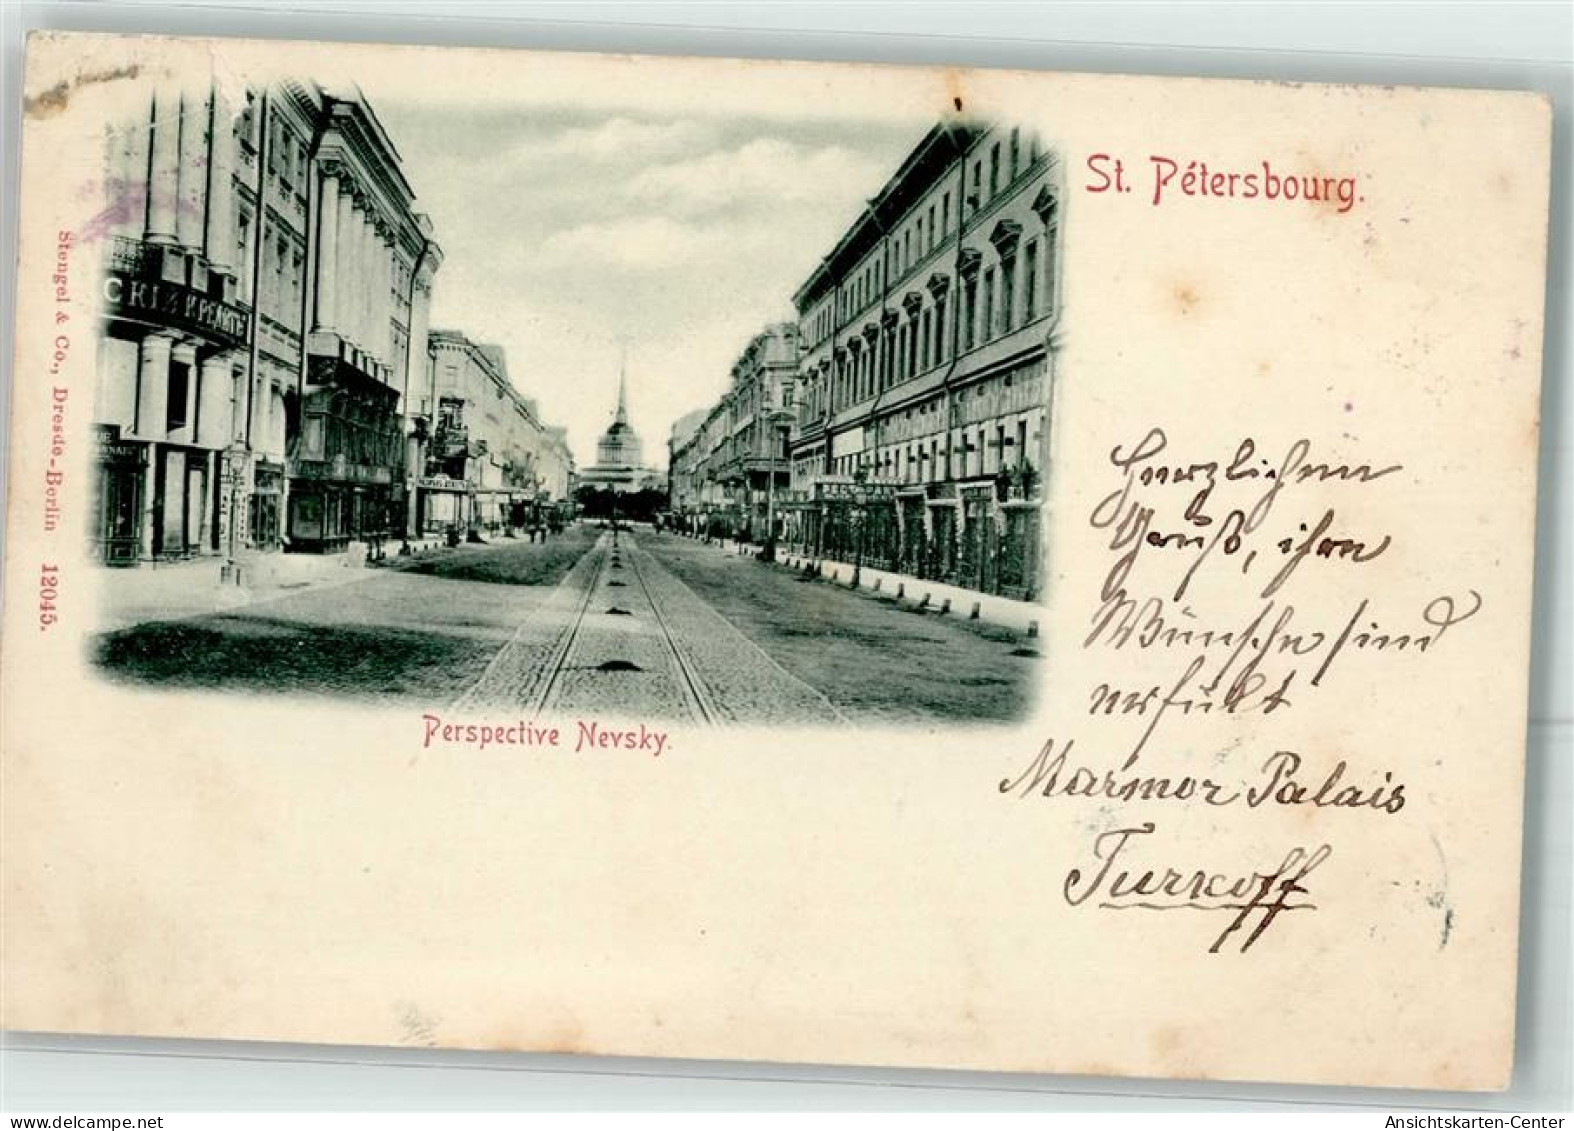 St. Pétersbourg.
Stengel & Co., Dresde-Berlin 12045.
Perspective Nevsky.
Herzlichen
Gruß, ihre
Wünsche sind
erfüllt
Marmor Palais
Turkoff
Ansichtskarten-Center